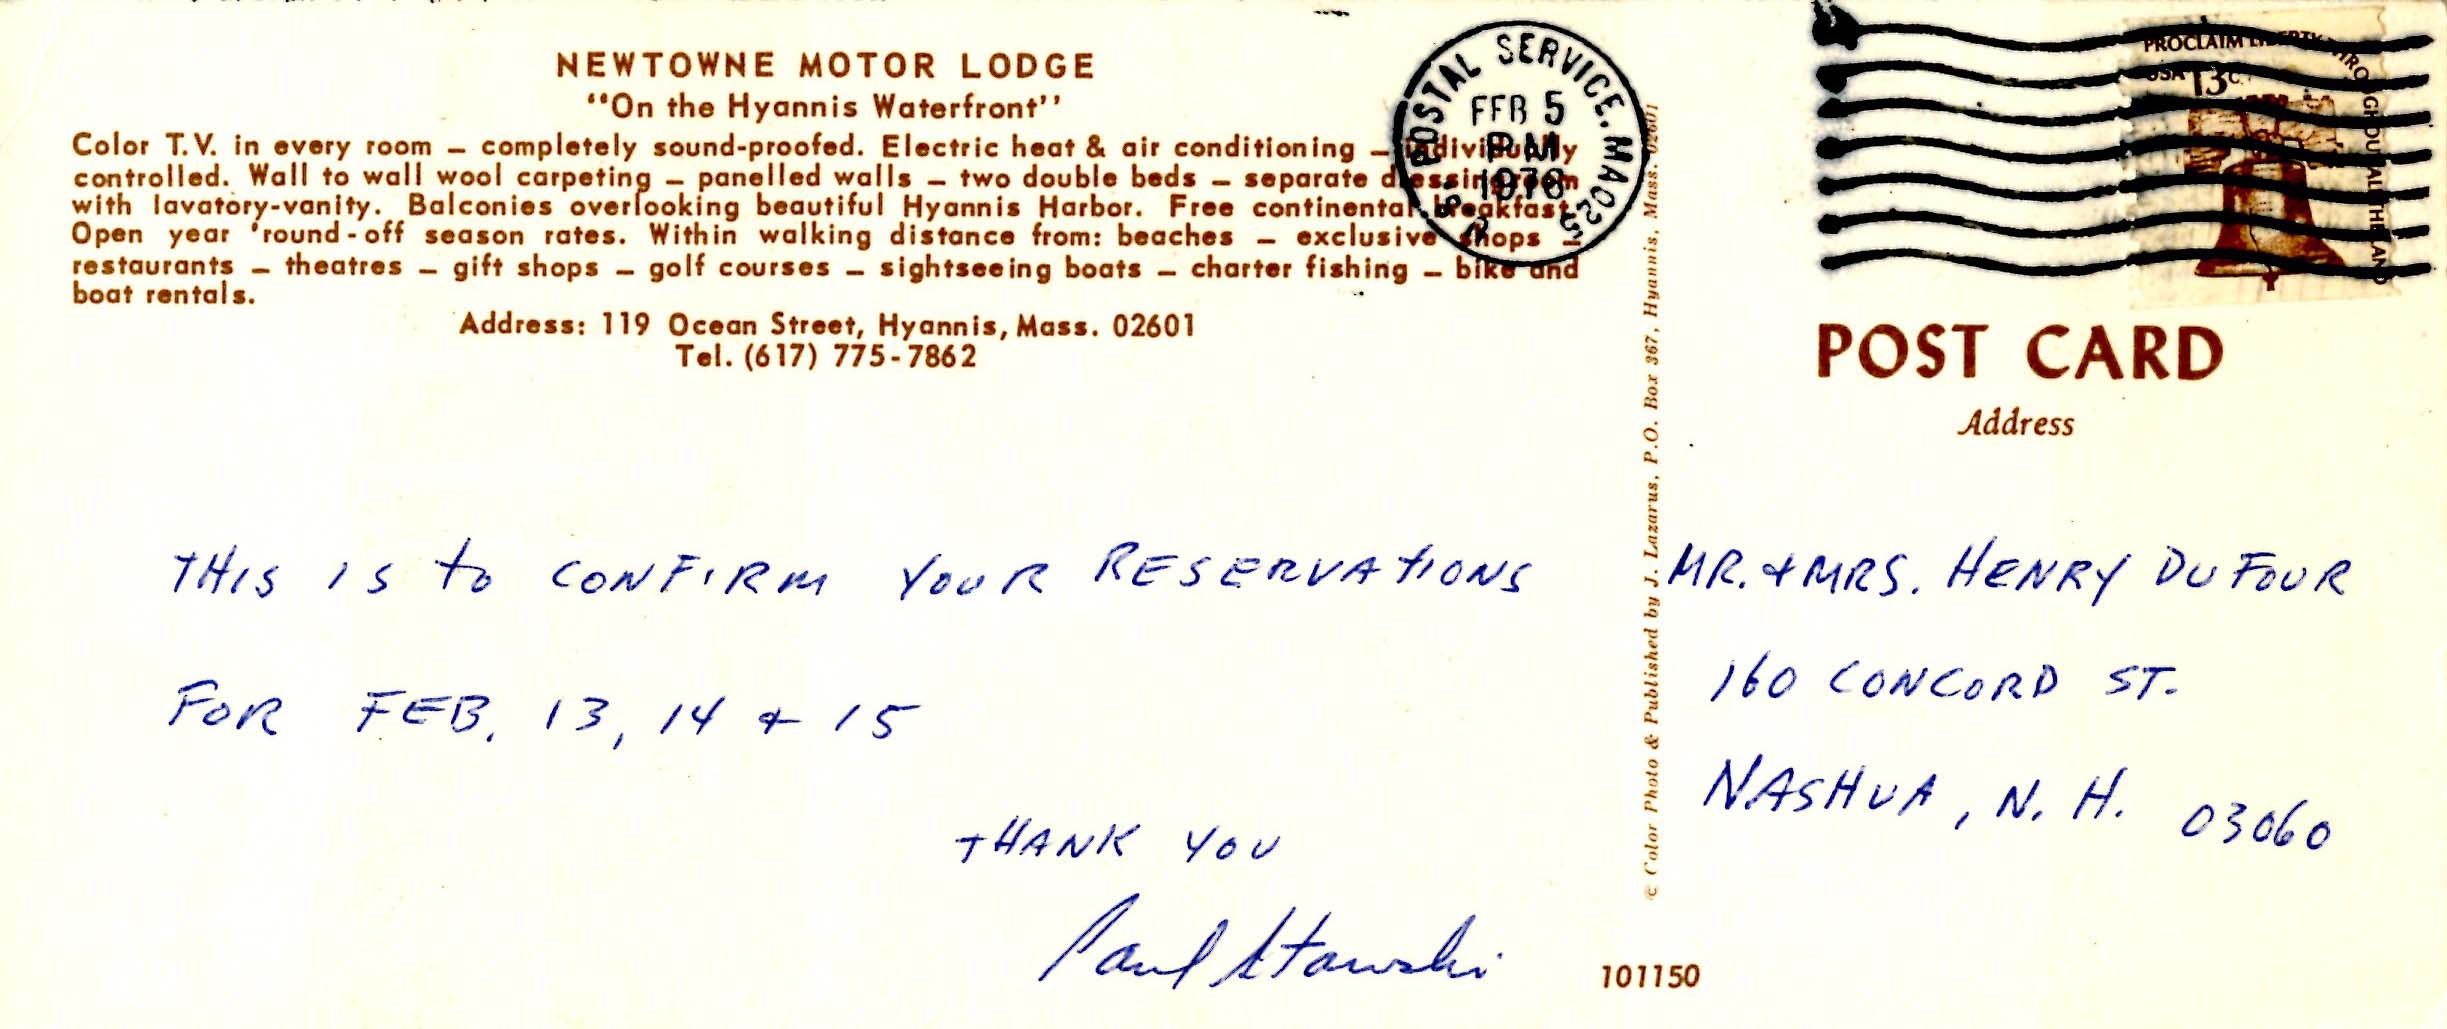 NEWTOWNE MOTOR LODGE
"On the Hyannis Waterfront"
Color T.V. in every room – completely sound-proofed. Electric heat & air conditioning – individually
controlled. Wall to wall wool carpeting – panelled walls – two double beds – separate dressing room
with lavatory-vanity. Balconies overlooking beautiful Hyannis Harbor. Free continental breakfast.
Open year 'round-off season rates. Within walking distance from: beaches – exclusive shops –
restaurants – theatres – gift shops – golf courses – sightseeing boats – charter fishing – bike and
boat rentals.
Address: 119 Ocean Street, Hyannis, Mass. 02601
Tel. (617) 775-7862
THIS IS to CONFIRM YOUR RESERVATIONS
FOR FEB. 13, 14 + 15
THANK YOU
Paul Stawski
101150
© Color Photo & Published by J. Lazarus, P.O. Box 367, Hyannis, Mass. 02601
U.S. POSTAL SERVICE, MA 025
FEB 5
PM
1976
PROCLAIM LIBERTY THROUGHOUT ALL THE LAND
USA 13c
POST CARD
Address
MR. + MRS. HENRY DUFOUR
160 CONCORD ST.
NASHUA, N. H. 03060